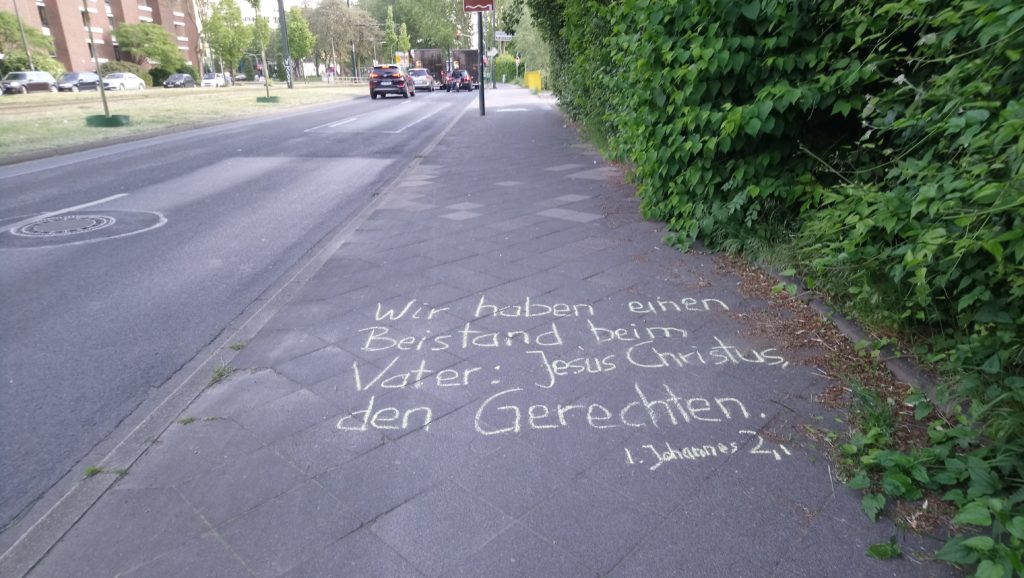 Wir haben einen
Beistand beim
Vater: Jesus Christus,
den Gerechten.
1. Johannes 2,1